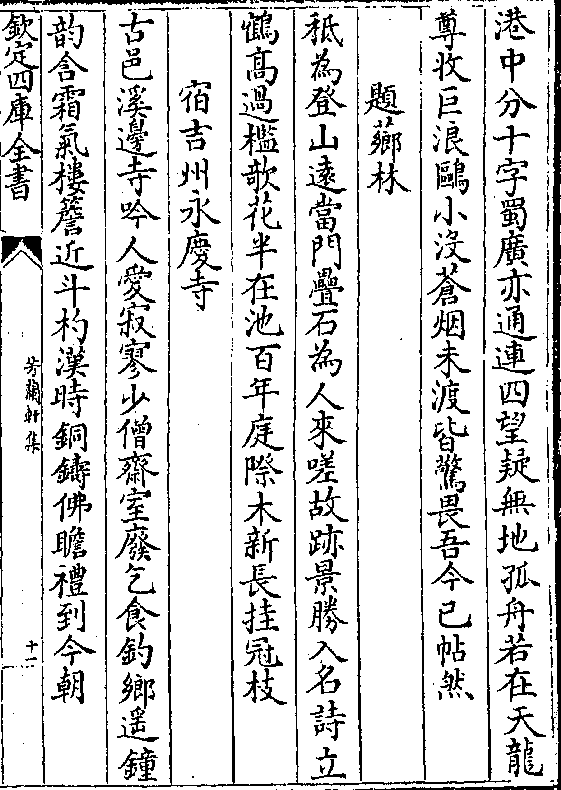 港中分十字蜀廣亦通連四望疑無地孤舟若在天龍
尊收巨浪鷗小没蒼烟未渡皆驚畏吾今已帖然
題薌林
秪為登山逺當門疊石為人來嗟故跡景勝入名詩立
鶴髙過檻欹花半在池百年庭際木新長挂冠枝
宿吉州永慶寺
古邑溪邊寺吟人愛寂寥少僧齋室廢乞食釣鄉遥鐘
韵含霜氣樓簷近斗杓漢時銅鑄佛瞻禮到今朝
欽定四庫全書
芳蘭軒集
十一